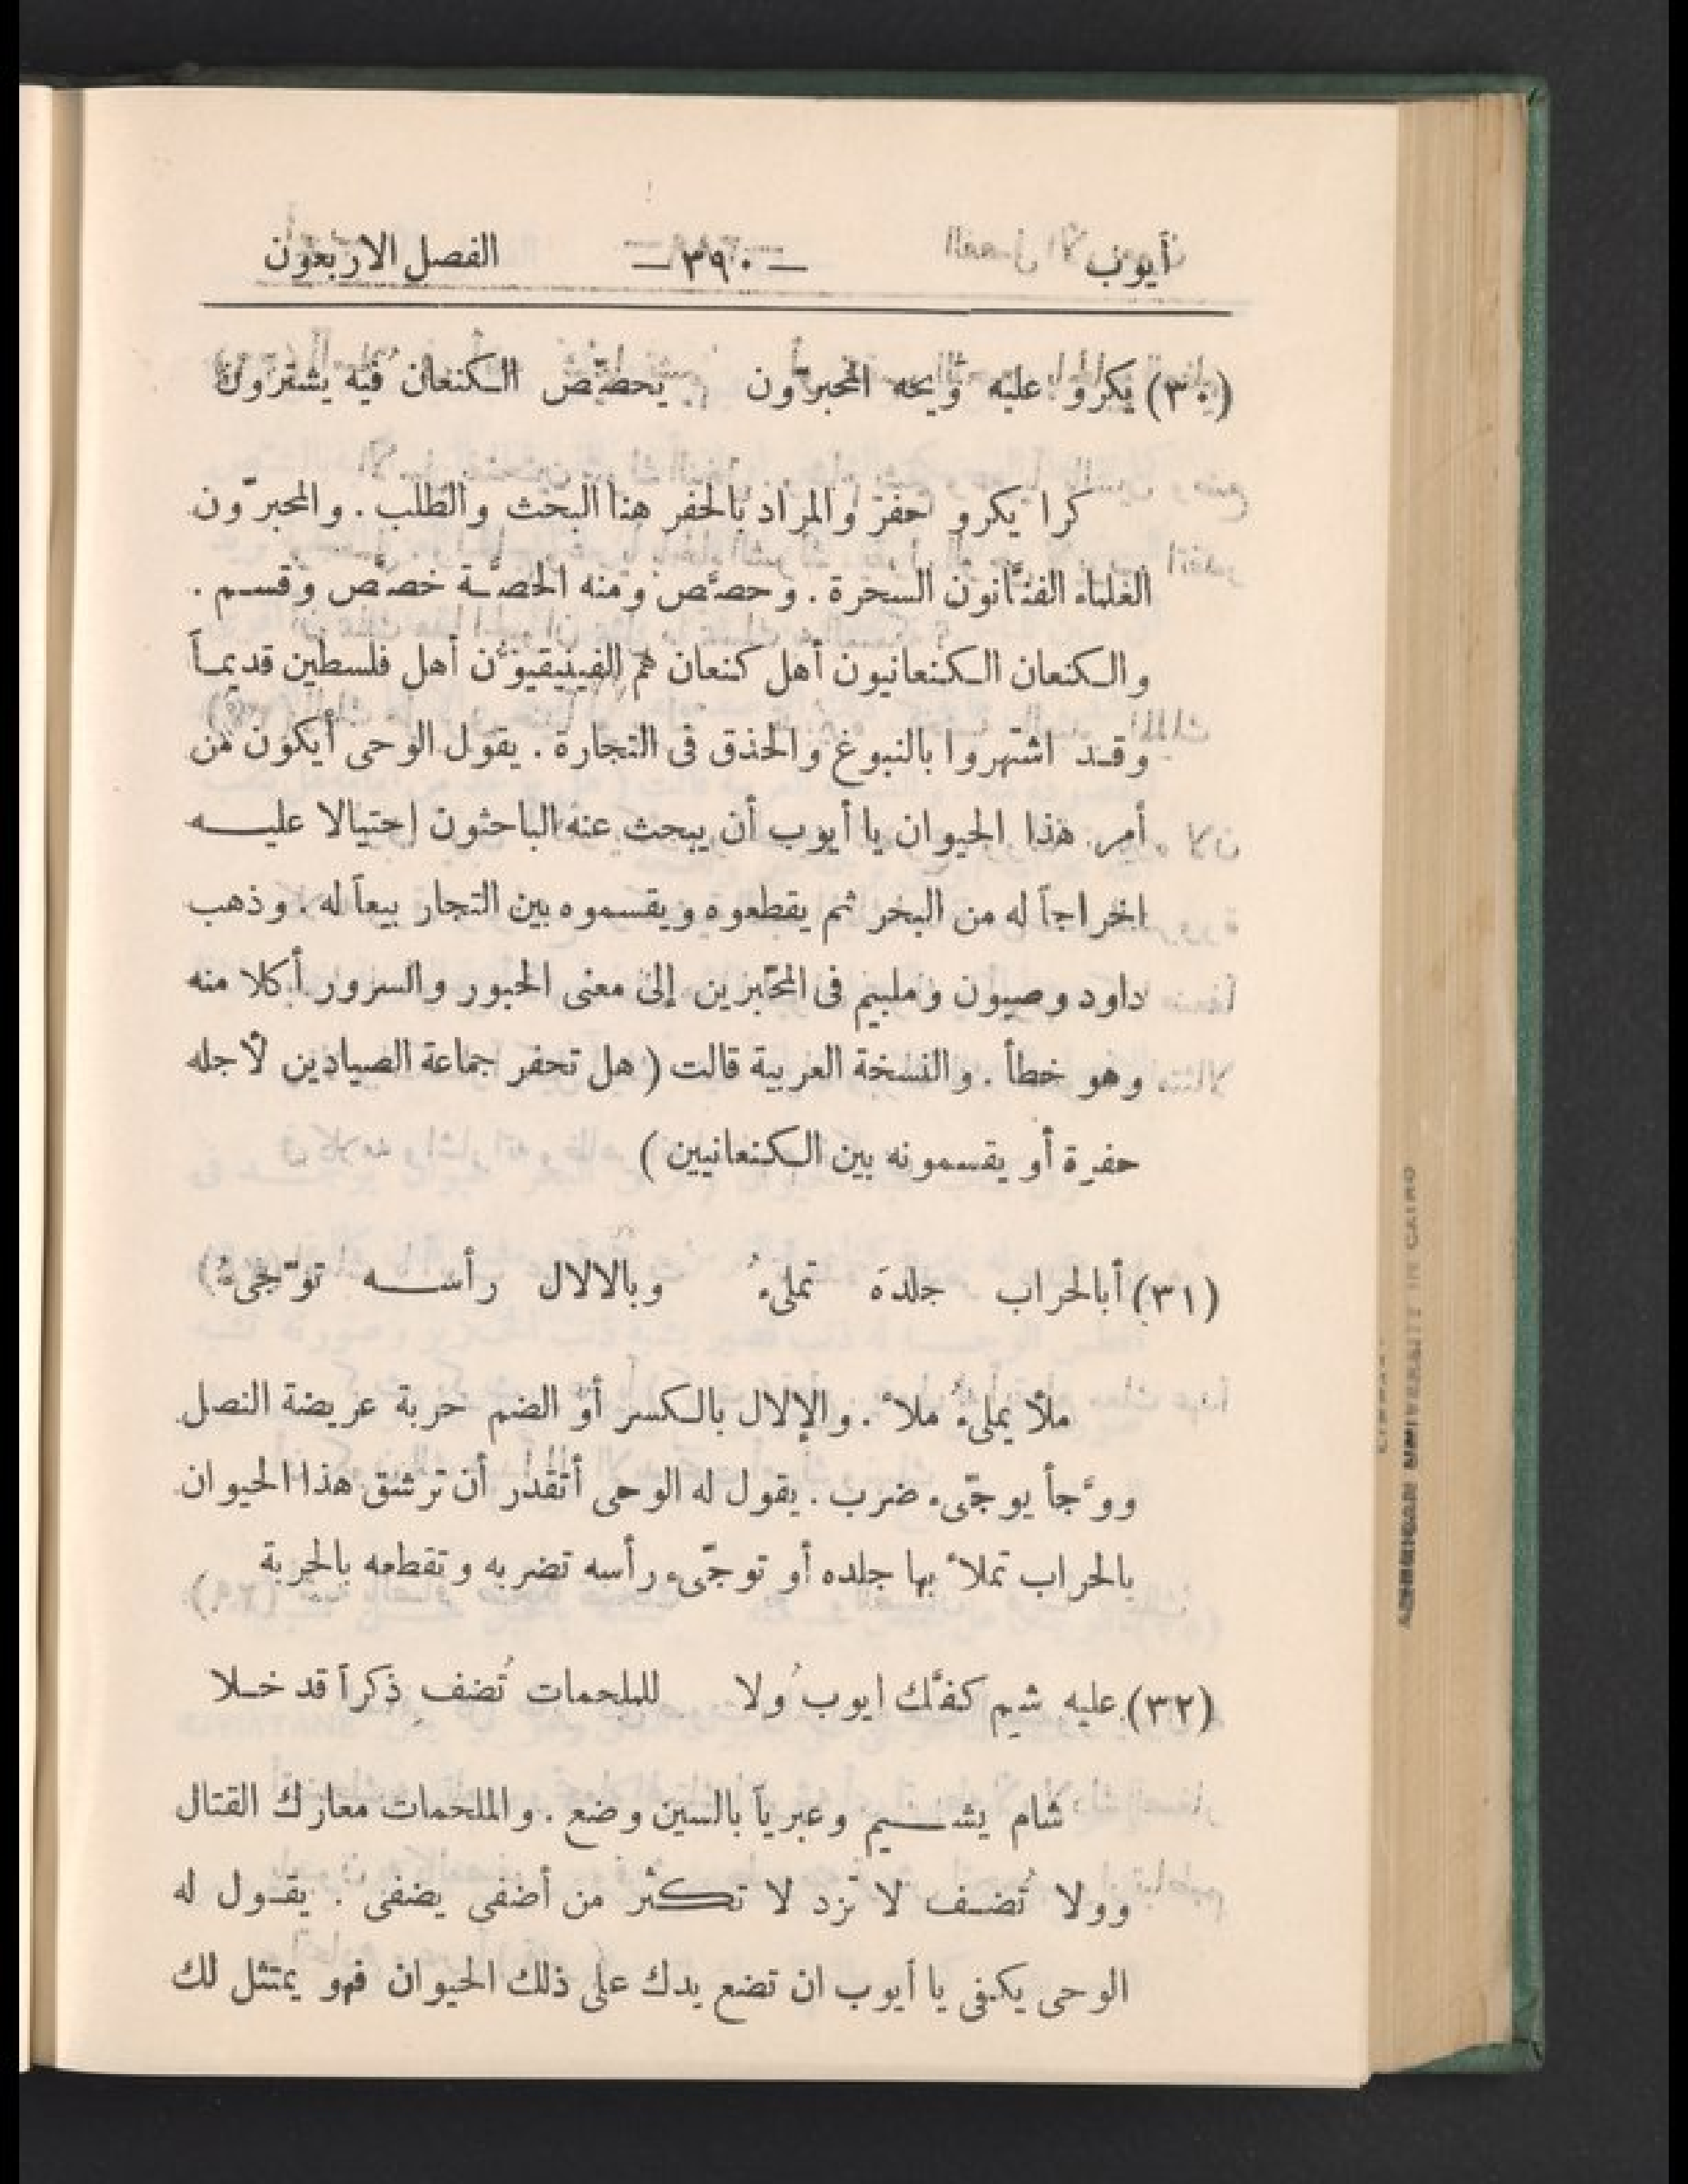 أيوب — ٣٩٠ — الفصل الاربعون
(٣٠) يكروا عليه وُيحه المحبرّون يحصّص الكنعان فيه يشترون
كرا يكرو حفر والمراد بالحفر هنا البحث والطلب . والمحبرّون
العلماء الفنَّانون السحرة . وحصَّص ومنه الحصـّـة خصَّص وقسـم .
والكنعان الكنعانيون أهل كنعان هم الفينيقيون أهل فلسطين قديمـاً
وقـد اشتهروا بالنبوغ والحذق فى التجارة . يقول الوحى أيكون من
أمر هذا الحيوان يا أيوب أن يبحث عنه الباحثون إحتيالا عليـــه
اخراجاً له من البحر ثم يقطعوه ويقسموه بين التجار بيعاً له . وذهب
داود وصيون وملبيم فى المحّبرين إلى معنى الحبور والسرور أكلا منه
وهو خطأ . والنسخة العربية قالت ( هل تحفر جماعة الصيادين لأجله
حفرة أو يقسمونه بين الكنعانيين )
(٣١) أبالحراب جلدَه تملىءُ وبالالال رأســـه توّجىءُ
ملأ يملىء ملأ . والإلال بالكسر أو الضم حربة عريضة النصل
ووجأ يوجّىء ضرب . يقول له الوحى أتقدر أن ترشق هذا الحيوان
بالحراب تملأ بها جلده أو توجّىء رأسه تضربه وتقطعه بالحربة
(٣٢) عليه شيم كفَّك ايوب ولا للملحمات تُضف ذكراً قد خـلا
شام يشــــيم وعبرياً بالسين وضع . والملحمات معارك القتال
وولا تُضـف لا تزد لا تكثر من أضفى يضفى . يقـول له
الوحى يكفى يا أيوب ان تضع يدك على ذلك الحيوان فهو يمتثل لك